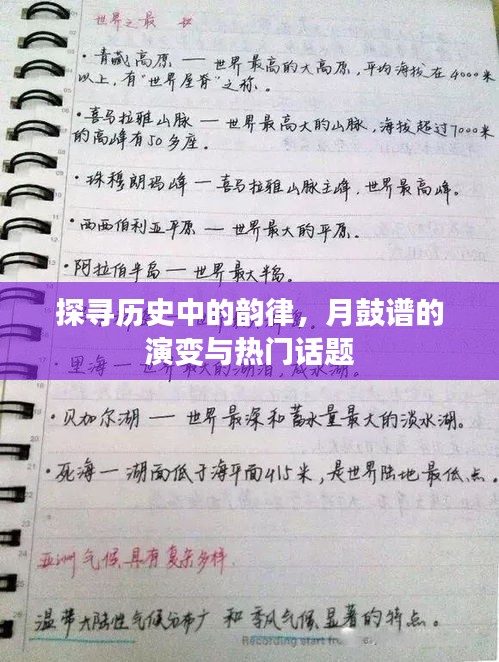 世界之最
·青藏高原 — 世界最高的大高原,平均海拔在4000米
以上,有"世界屋脊"之称。
·喜马拉雅山脉 — 世界最高大的山脉,海拔超过7000米
的高峰有50多座。
·珠穆朗玛峰 — 喜马拉雅山脉主峰,世界最高峰。
·西西伯利亚平原 — 世界最大的平原.
·阿拉伯半岛 — 世界最大半岛。
探寻历史中的韵律，月鼓谱的
演变与热门话题
·里海 — 世界最大的湖泊,咸水湖。
·贝加尔湖 — 世界最深和蓄水量最大的淡水湖。
·死海 — 湖面低于海平面415米,是世界陆地最低点。
亚洲气候具有复杂多样
温带大陆性气候分布广 和季风气候显著的特点。
Recording start from